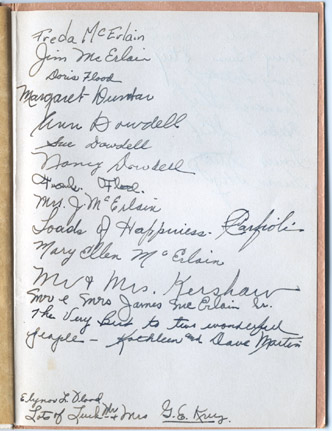 Freda McErlain
Jim McErlain
Doris Flood
Margaret Dunbar
Ann Dowdell
Sue Dowdell
Nancy Dowdell
Flood.
Mrs. J. McErlain
Loads of Happiness.
Mary Ellen McErlain
Mr & Mrs. Kershaw
Mr & Mrs James McErlain Sr.
The Very Best to two wonderful
people - Kathleen and Dave Martin
Elynor L. Flood
Lots of Luck Mr & Mrs G.E. Krug.